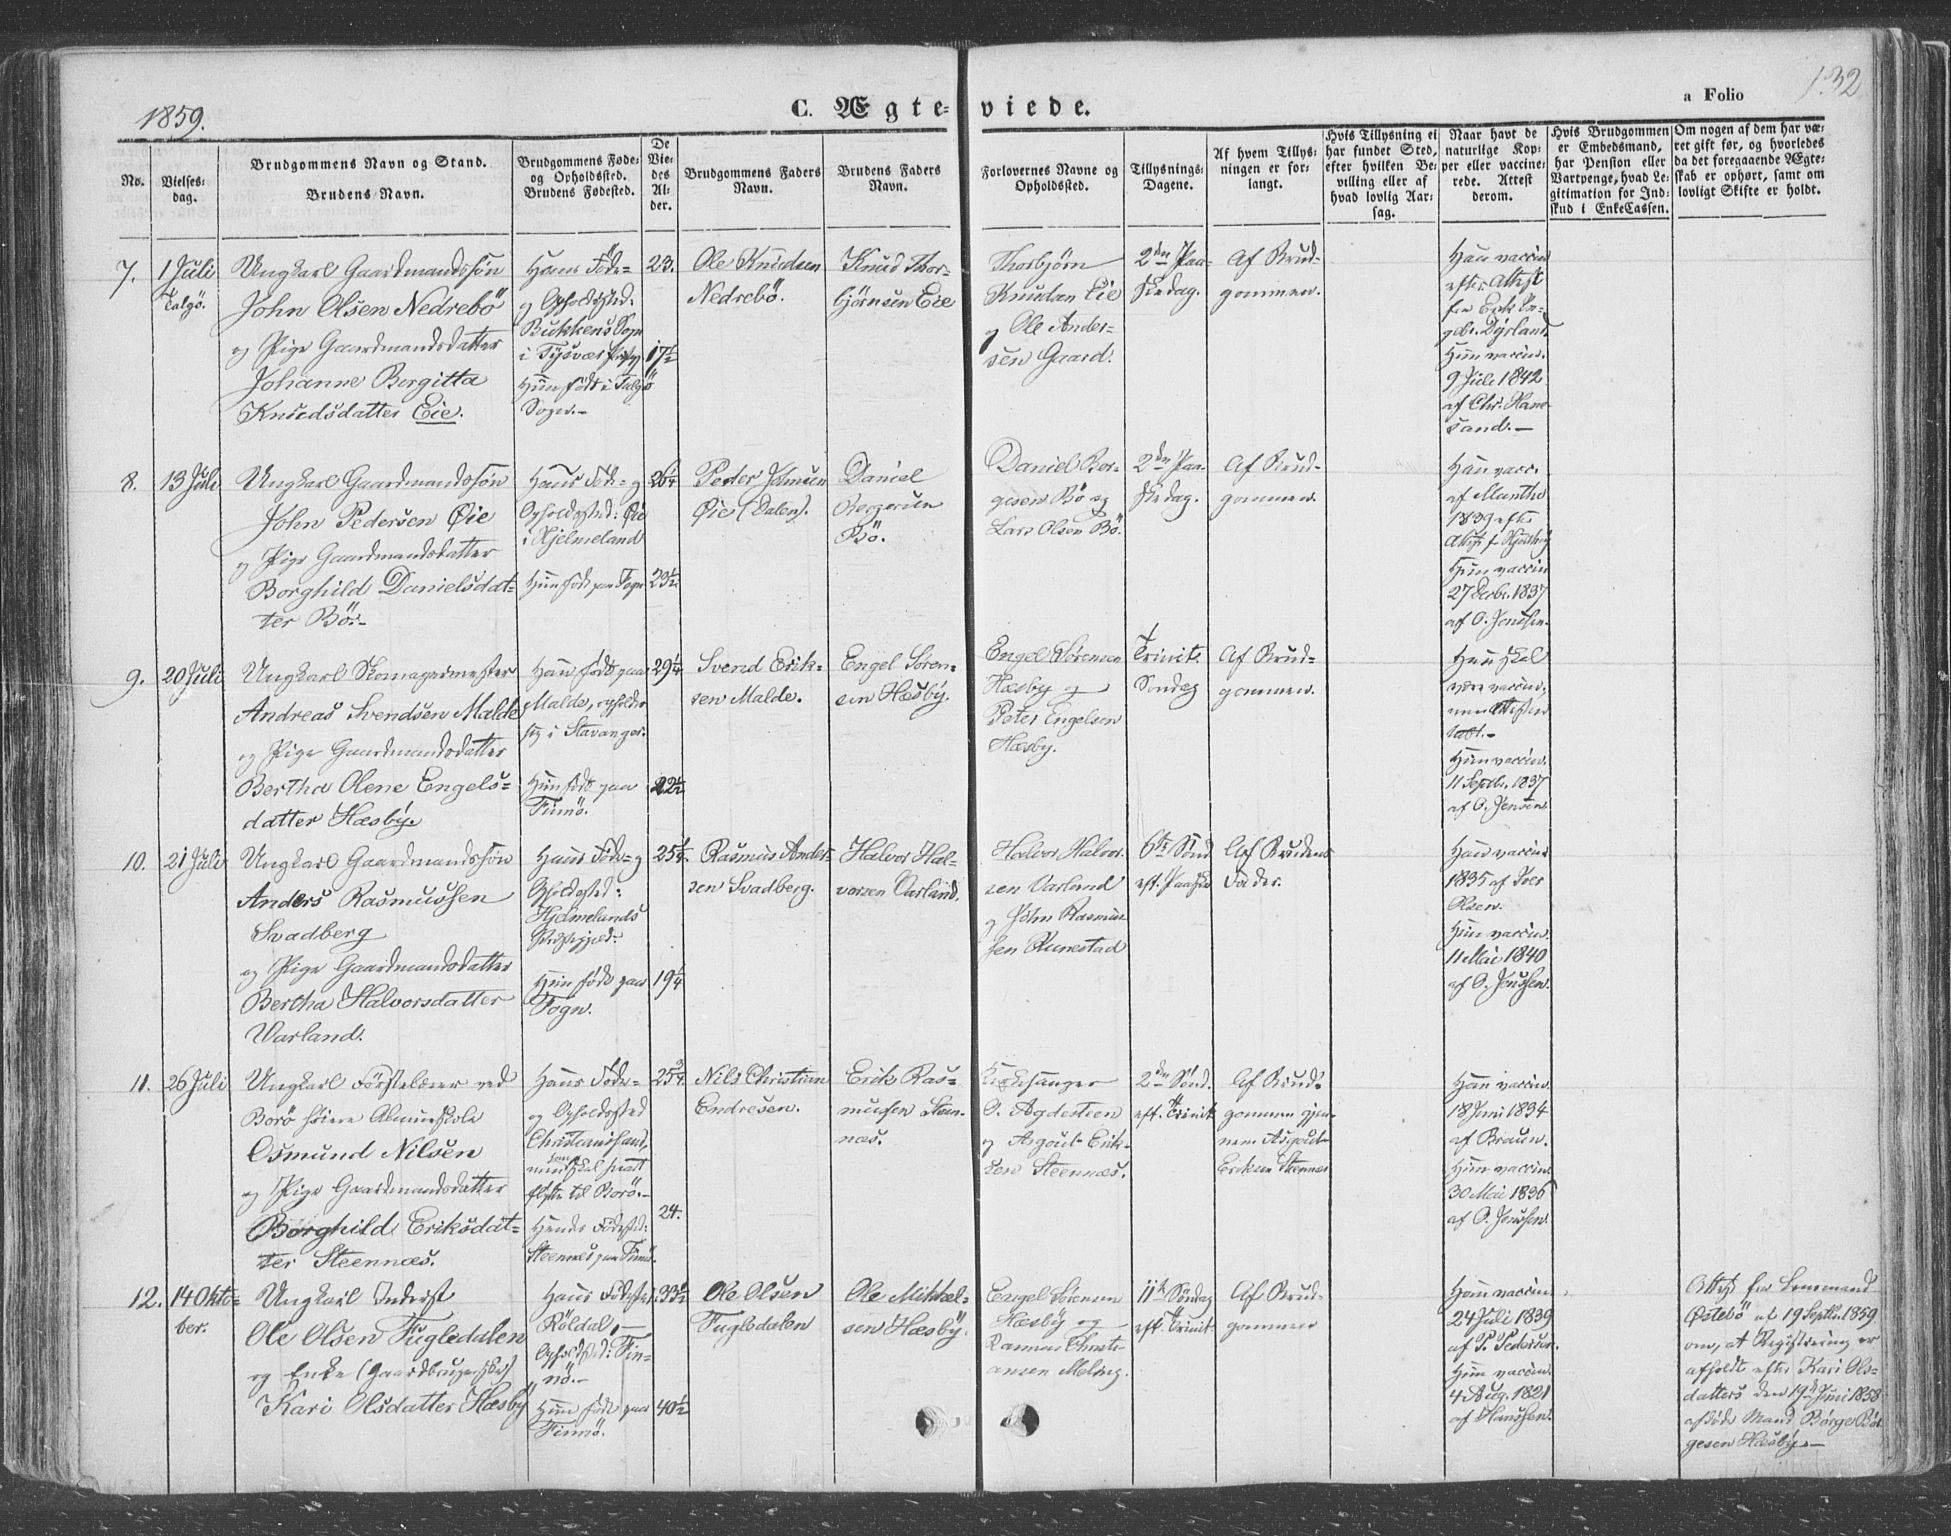 1859.
C. Ægte- viede.
a Folio 132
No.
Vielses-
dag.
Brudgommens Navn og Stand.
Brudens Navn.
Brudgommens Føde-
og Opholdsted.
Brudens Fødested.
De
Vie-
des
Al-
der.
Brudgommens Faders
Navn.
Brudens Faders
Navn.
Forlovernes Navne og
Opholdsted.
Tillysnings-
Dagene.
Af hvem Tillys-
ningen er for-
langt.
Hvis Tillysning ei
har fundet Sted,
efter hvilken Be-
villing eller af
hvad lovlig Aar-
sag.
Naar havt de
naturlige Kop-
per eller vaccine-
rede. Attest
derom.
Hvis Brudgommen
er Embedsmand,
har Pension eller
Vartpenge, hvad Le-
gitimation for Ind-
skud i EnkeCassen.
Om nogen af dem har væ-
ret gift før, og hvorledes
da det foregaaende Ægte-
skab er ophørt, samt om
lovligt Skifte er holdt.
7.
1 Juli
Talgö.
Ungkarl Gaardmandssön
John Olsen Nedrebö
og Pige Gaardmandsdatter
Johanne Bergitta
Knudsdatter Eie.
Hans Föde-
og Opholdssted:
Bukkens Sogn
i Tysvær
Hun født i Talgö
Sogn.-
23.
17 1/2
Ole Knudsen
Nedrebö.
Knud Thor-
bjørnsen Eie
Thorbjørn
Knudsen Eie
og Ole Ander-
sen Gaard.
2den Paa-
skedag.
Af Brud-
gommen.
Han vaccin
efter Attest
fra Erik In-
gebr. Dyrland.
Hun vaccin.
9 Juli 1842
af Chr. Hane-
sand.-
8.
13 Juli
Ungkarl Gaardmandssön
John Pedersen Øie
og Pige Gaardmandsdatter
Borghild Danielsdat-
ter Bö.-
Hans Föde- og
Opholdssted: Øie
i Hjelmeland
Hun født paa Fogn
26 1/4
23 1/2
Peder Johnsen
Øie (Dalen).
Daniel
Bergersen
Bö.
Daniel Ber-
gesen Bö og
Lars Olsen Bö.
2den Paa-
skedag.
Af Brud-
gommen.
Han vacc.
af Munthe
1839 efter
Attest f.
Hun vaccin
27 Decbr. 1837
af O. Jonssen-
9.
20 Juli
Ungkarl Skomagermester
Andreas Svendsen Malde
og Pige Gaardmandsdatter
Bertha Olene Engels-
datter Hæsby.
Han født paa
Malde, opholder
sig i Stavanger.
Hun født paa
Finnö.
29 1/4
22 1/2
Svend Erik-
sen Malde.
Engel Sören-
sen Hæsby.
Engel Sörensen
Hæsby og
Peter Engelsen
Hæsby.
Trinit.
Søndag
Af Brud-
gommen.
Han skal
være vaccin.
men Attesten
tabt.-
Hun vaccin.
11 Septbr. 1837
af O. Jensen.
10.
21 Juli
Ungkarl Gaardmandssön
Anders Rasmussen
Svadberg
og Pige Gaardmandsdatter
Bertha Halvorsdatter
Varland.
Hans Föde- og
Opholdssted:
Hjelmelands
Præstegjeld.
Hun født paa
Fogn.
25 1/4.
19 1/4
Rasmus Ander-
sen Svadberg.
Halvor Hal-
vorsen Varland.
Halvor Halvor-
sen Varland
og John Rasmus-
sen Runestad
6te Sönd.
eft. Paaske
Af Brudens
Fader.
Han vaccin
1835 af Iver
Olsen.
Hun vaccin.
11 Mai 1840
af O. Jonssen.
11.
26 Juli
Ungkarl Förstelærer ved
Borö höiere Almueskole
Osmund Nilsen
og Pige Gaardmandsdatter
Borghild Eriksdat-
ter Steennæs.
Hans Föde-
og Opholdssted
Christianssand,
men skal snart
flytte til Borö.-
Hendes Födested:
Steennæs paa Finnö.
25 3/4.
24.
Nils Christian
Endresen.
Erik Ras-
mussen Steen-
næs.
Kirkesanger
O. Agdestien
og Asgout Erik-
sen Steennæs.
2den Sönd.
eft. Trinit
Af Brud-
gommen gjen-
nem Asgout
Eriksen Steennæs
Han vaccin.
18 Juni 1834
af Braun.
Hun vaccin
30 Mai 1836
af O. Jonssen.
12.
14 Okto-
ber.
Ungkarl Inderst
Ole Olsen Fugledalen
og Enke (Gaardbrugerske)
Kari Olsdatter Hæsby
Hans Födested:
Röldal,-
Opholdssted: Fin-
nö.-
Hun født paa
Finnö.
33 1/2
40 1/2
Ole Olsen
Fugledalen
Ole Mikkel-
sen Hæsby.
Engel Sörensen
Hæsby og
Rasmus Christi-
ansen Meling.
11te Söndag
eft. Trinit.
Af Brud-
gommen
Han vaccin.
24 Juli 1839
af P. Pedersen.
Hun vaccin.
4 Aug. 1821
af Hanssen.
Attest fra Lensmand
Østebö af 19 Septbr. 1859
om, at Registrering er
afholdt efter Kari Ols-
datters den 19de Juni 1858
afdöde Mand Börge Bör-
gesen Hæsby.-